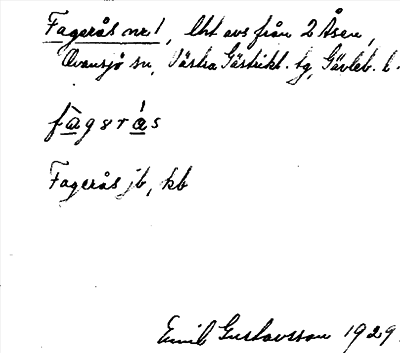 Fagerås nr 1, lht avs från 2 Åsen,
Ovansjö sn, Västra Gästrikl. tg, Gävleb. l.
fàgərás
Fagerås jb, kb
Emil Gustavsson 1929.